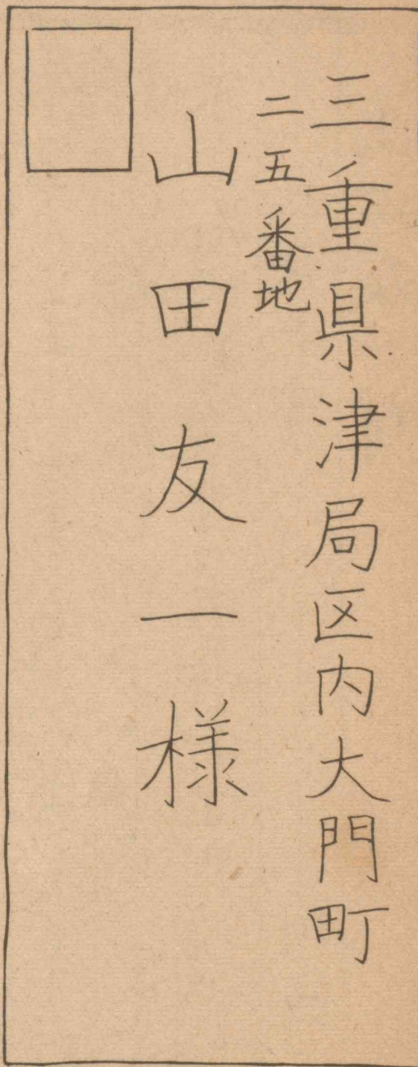 三重県津局区内大門町
二五番地
山田友一様